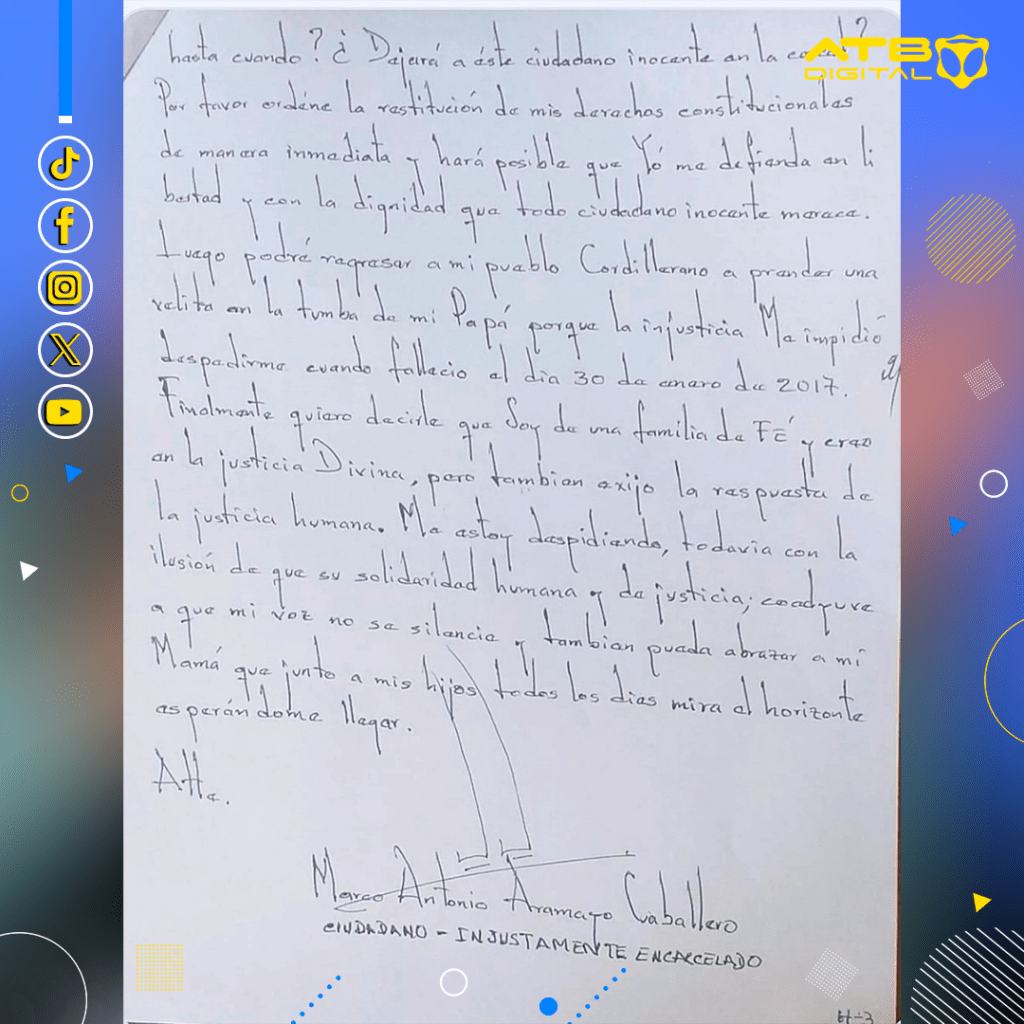 hasta cuando? ¿ Dejará a éste ciudadano inocente en la cárcel?
ATB
DIGITAL
Por favor ordéne la restitución de mis derechos constitucionales
de manera inmediata y hará posible que Yó me defienda en li
bertad y con la dignidad que todo ciudadano inocente merece.
Luego podré regresar a mi pueblo Cordillerano a prender una
velita en la tumba de mi Papá porque la injusticia Me impidió
despedirme cuando fallecio el día 30 de enero de 2017.
Finalmente quiero decirle que Soy de una familia de FÉ y creo
en la justicia Divina, pero tambien exijo la respuesta de
la justicia humana. Me estoy despidiendo, todavía con la
ilusión de que su solidaridad humana y de justicia; coadyuve
a que mi voz no se silencie y tambien pueda abrazar a mi
Mamá que junto a mis hijos todos los dias mira el horizonte
esperándome llegar.
Atte.
Marco Antonio Aramayo Caballero
CIUDADANO - INJUSTAMENTE ENCARCELADO